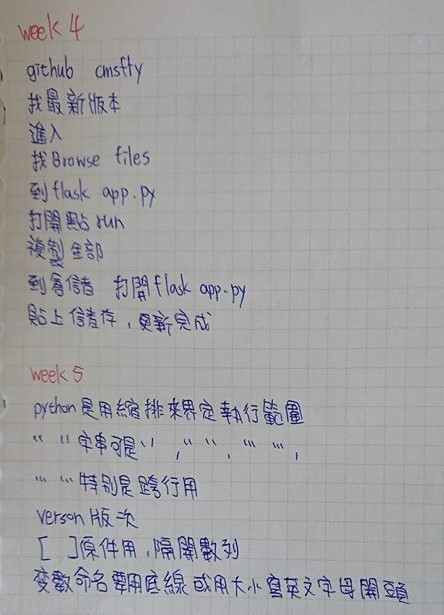 week 4
github cmsfly
找最新版本
進入
找Browse files
到flask app.py
打開點run
複製全部
到 打開flask app.py
貼上儲存,更新完成
week 5
python是用縮排來界定執行範圍
“ “字串可是‘ ‘ , “ “ , “‘ “‘ ,
“‘ “‘特別是跨行用
verson版次
[ ]條件用,隔開數列
變數命名要用底線 或用大小寫英文字母開頭